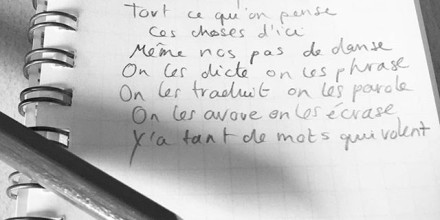 Tout ce qu'on pense
Ces choses d'ici
Même nos pas de danse
On les dicte on les phrase
On les traduit on les parole
On les avoue on les écrase
Y'a tant de mots qui volent